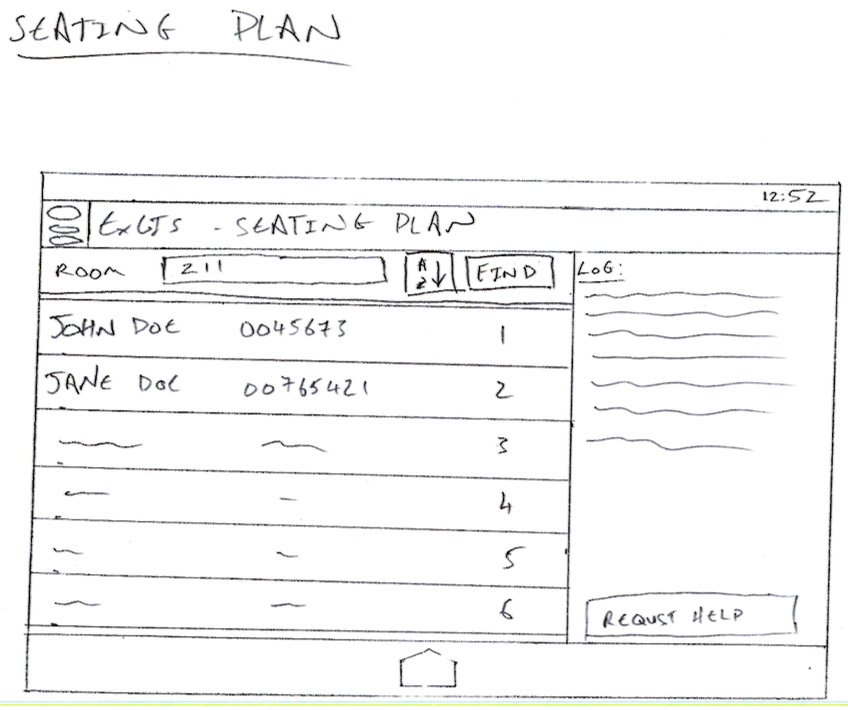 SEATING PLAN
12:52
ExLTS - SEATING PLAN
ROOM 211 A Z↓ FIND
LOG:
JOHN DOE 0045673 1
JANE DOE 00765421 2
3
4
5
6
REQUST HELP